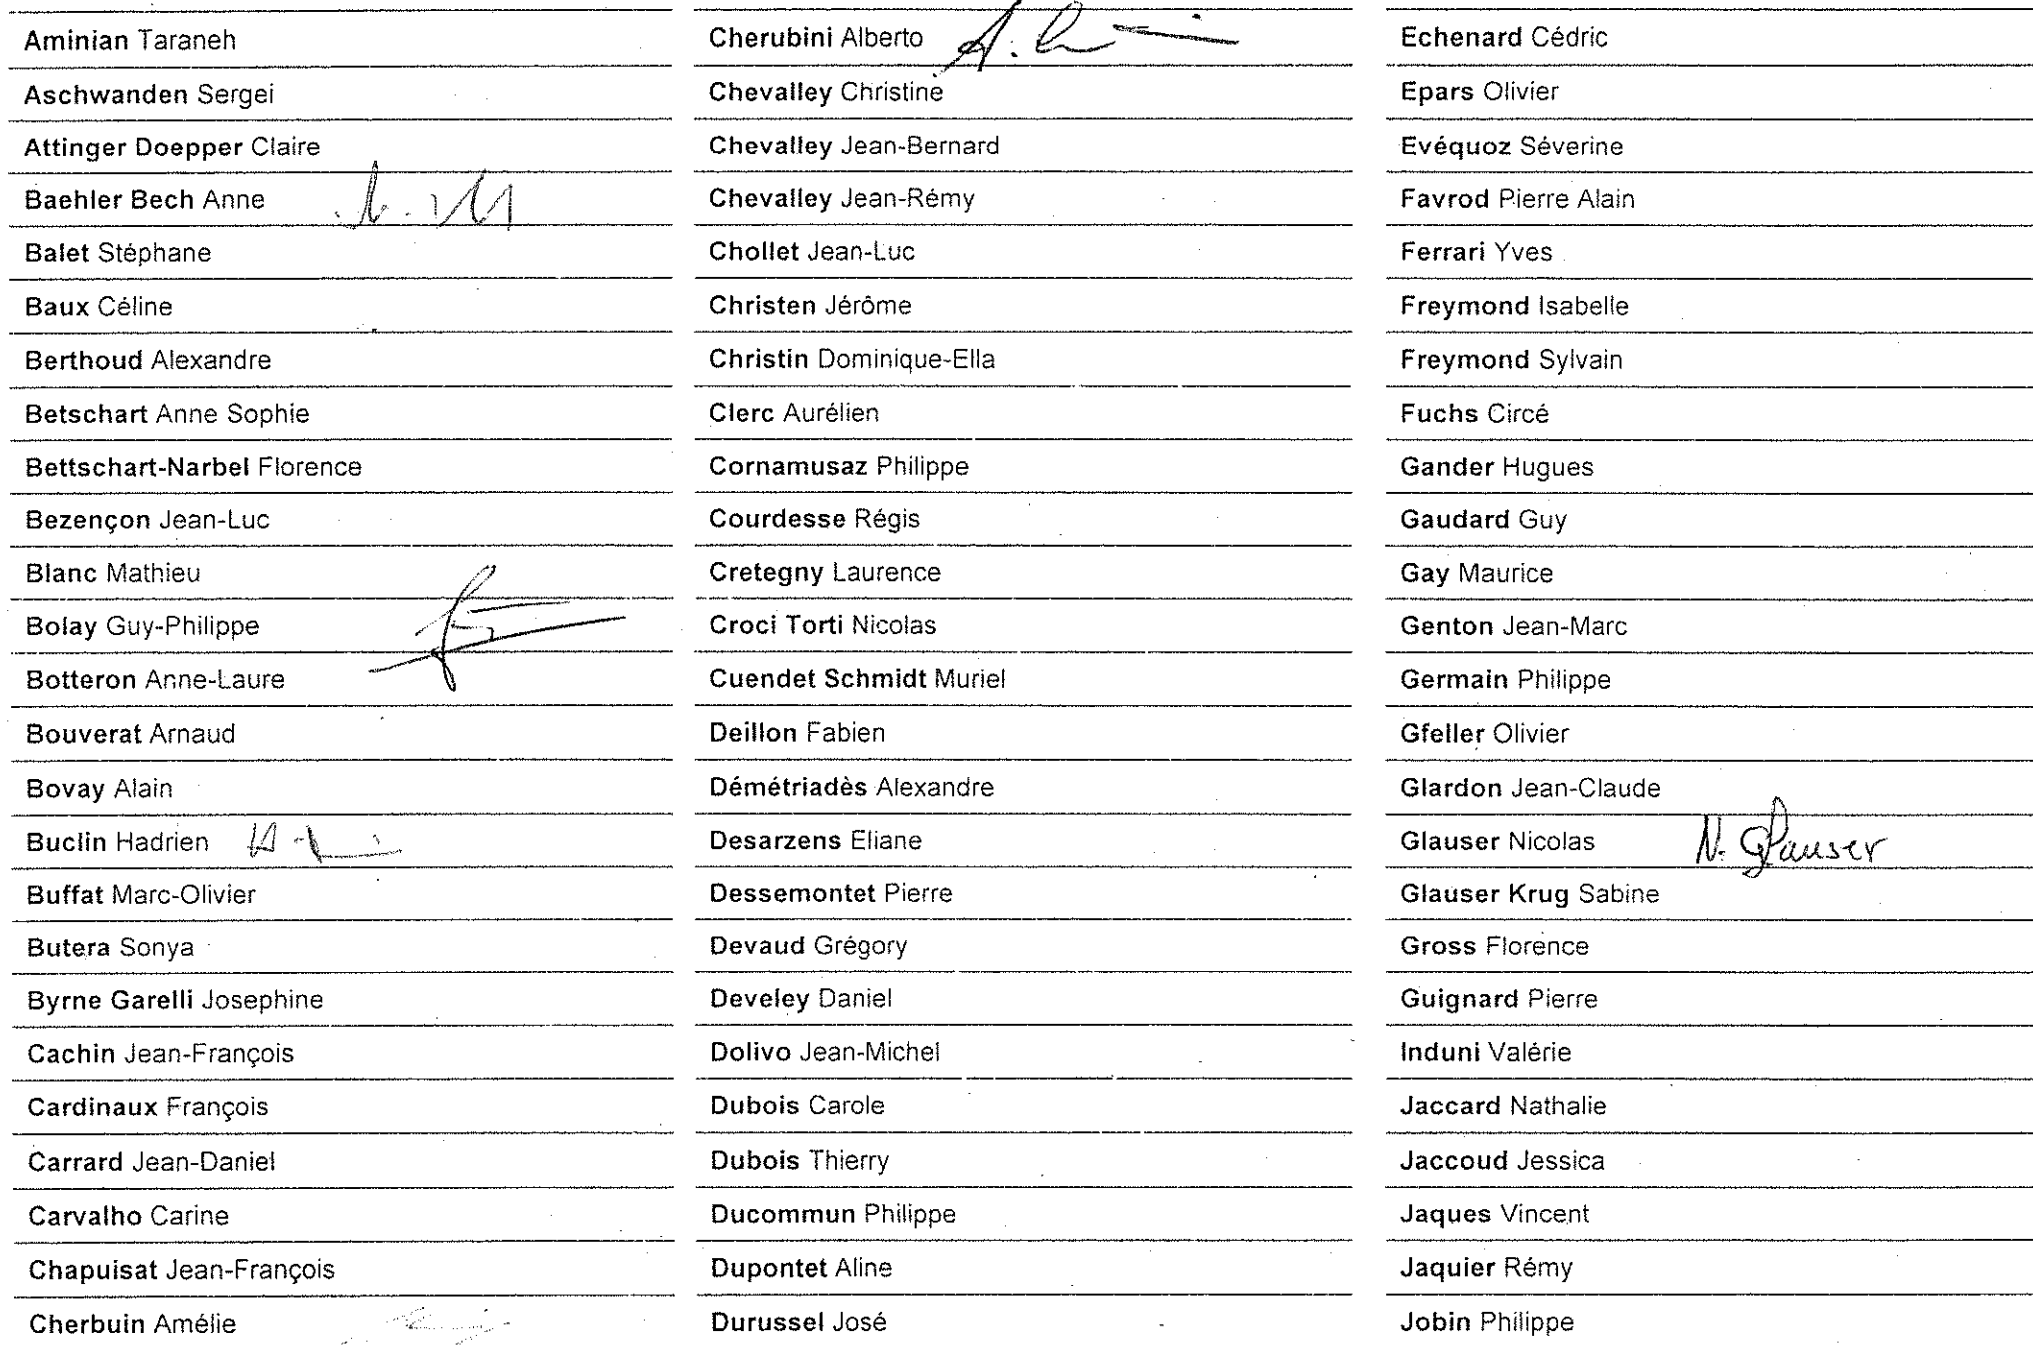 Aminian Taraneh
Aschwanden Sergei
Attinger Doepper Claire
Baehler Bech Anne
Balet Stéphane
Baux Céline
Berthoud Alexandre
Betschart Anne Sophie
Bettschart-Narbel Florence
Bezençon Jean-Luc
Blanc Mathieu
Bolay Guy-Philippe
Botteron Anne-Laure
Bouverat Arnaud
Bovay Alain
Buclin Hadrien
Buffat Marc-Olivier
Butera Sonya
Byrne Garelli Josephine
Cachin Jean-François
Cardinaux François
Carrard Jean-Daniel
Carvalho Carine
Chapuisat Jean-François
Cherbuin Amélie
Cherubini Alberto
Chevalley Christine
Chevalley Jean-Bernard
Chevalley Jean-Rémy
Chollet Jean-Luc
Christen Jérôme
Christin Dominique-Ella
Clerc Aurélien
Cornamusaz Philippe
Courdesse Régis
Cretegny Laurence
Croci Torti Nicolas
Cuendet Schmidt Muriel
Deillon Fabien
Démétriadès Alexandre
Desarzens Eliane
Dessemontet Pierre
Devaud Grégory
Develey Daniel
Dolivo Jean-Michel
Dubois Carole
Dubois Thierry
Ducommun Philippe
Dupontet Aline
Durussel José
Echenard Cédric
Epars Olivier
Evéquoz Séverine
Favrod Pierre Alain
Ferrari Yves
Freymond Isabelle
Freymond Sylvain
Fuchs Circé
Gander Hugues
Gaudard Guy
Gay Maurice
Genton Jean-Marc
Germain Philippe
Gfeller Olivier
Glardon Jean-Claude
Glauser Nicolas N. Glauser
Glauser Krug Sabine
Gross Florence
Guignard Pierre
Induni Valérie
Jaccard Nathalie
Jaccoud Jessica
Jaques Vincent
Jaquier Rémy
Jobin Philippe